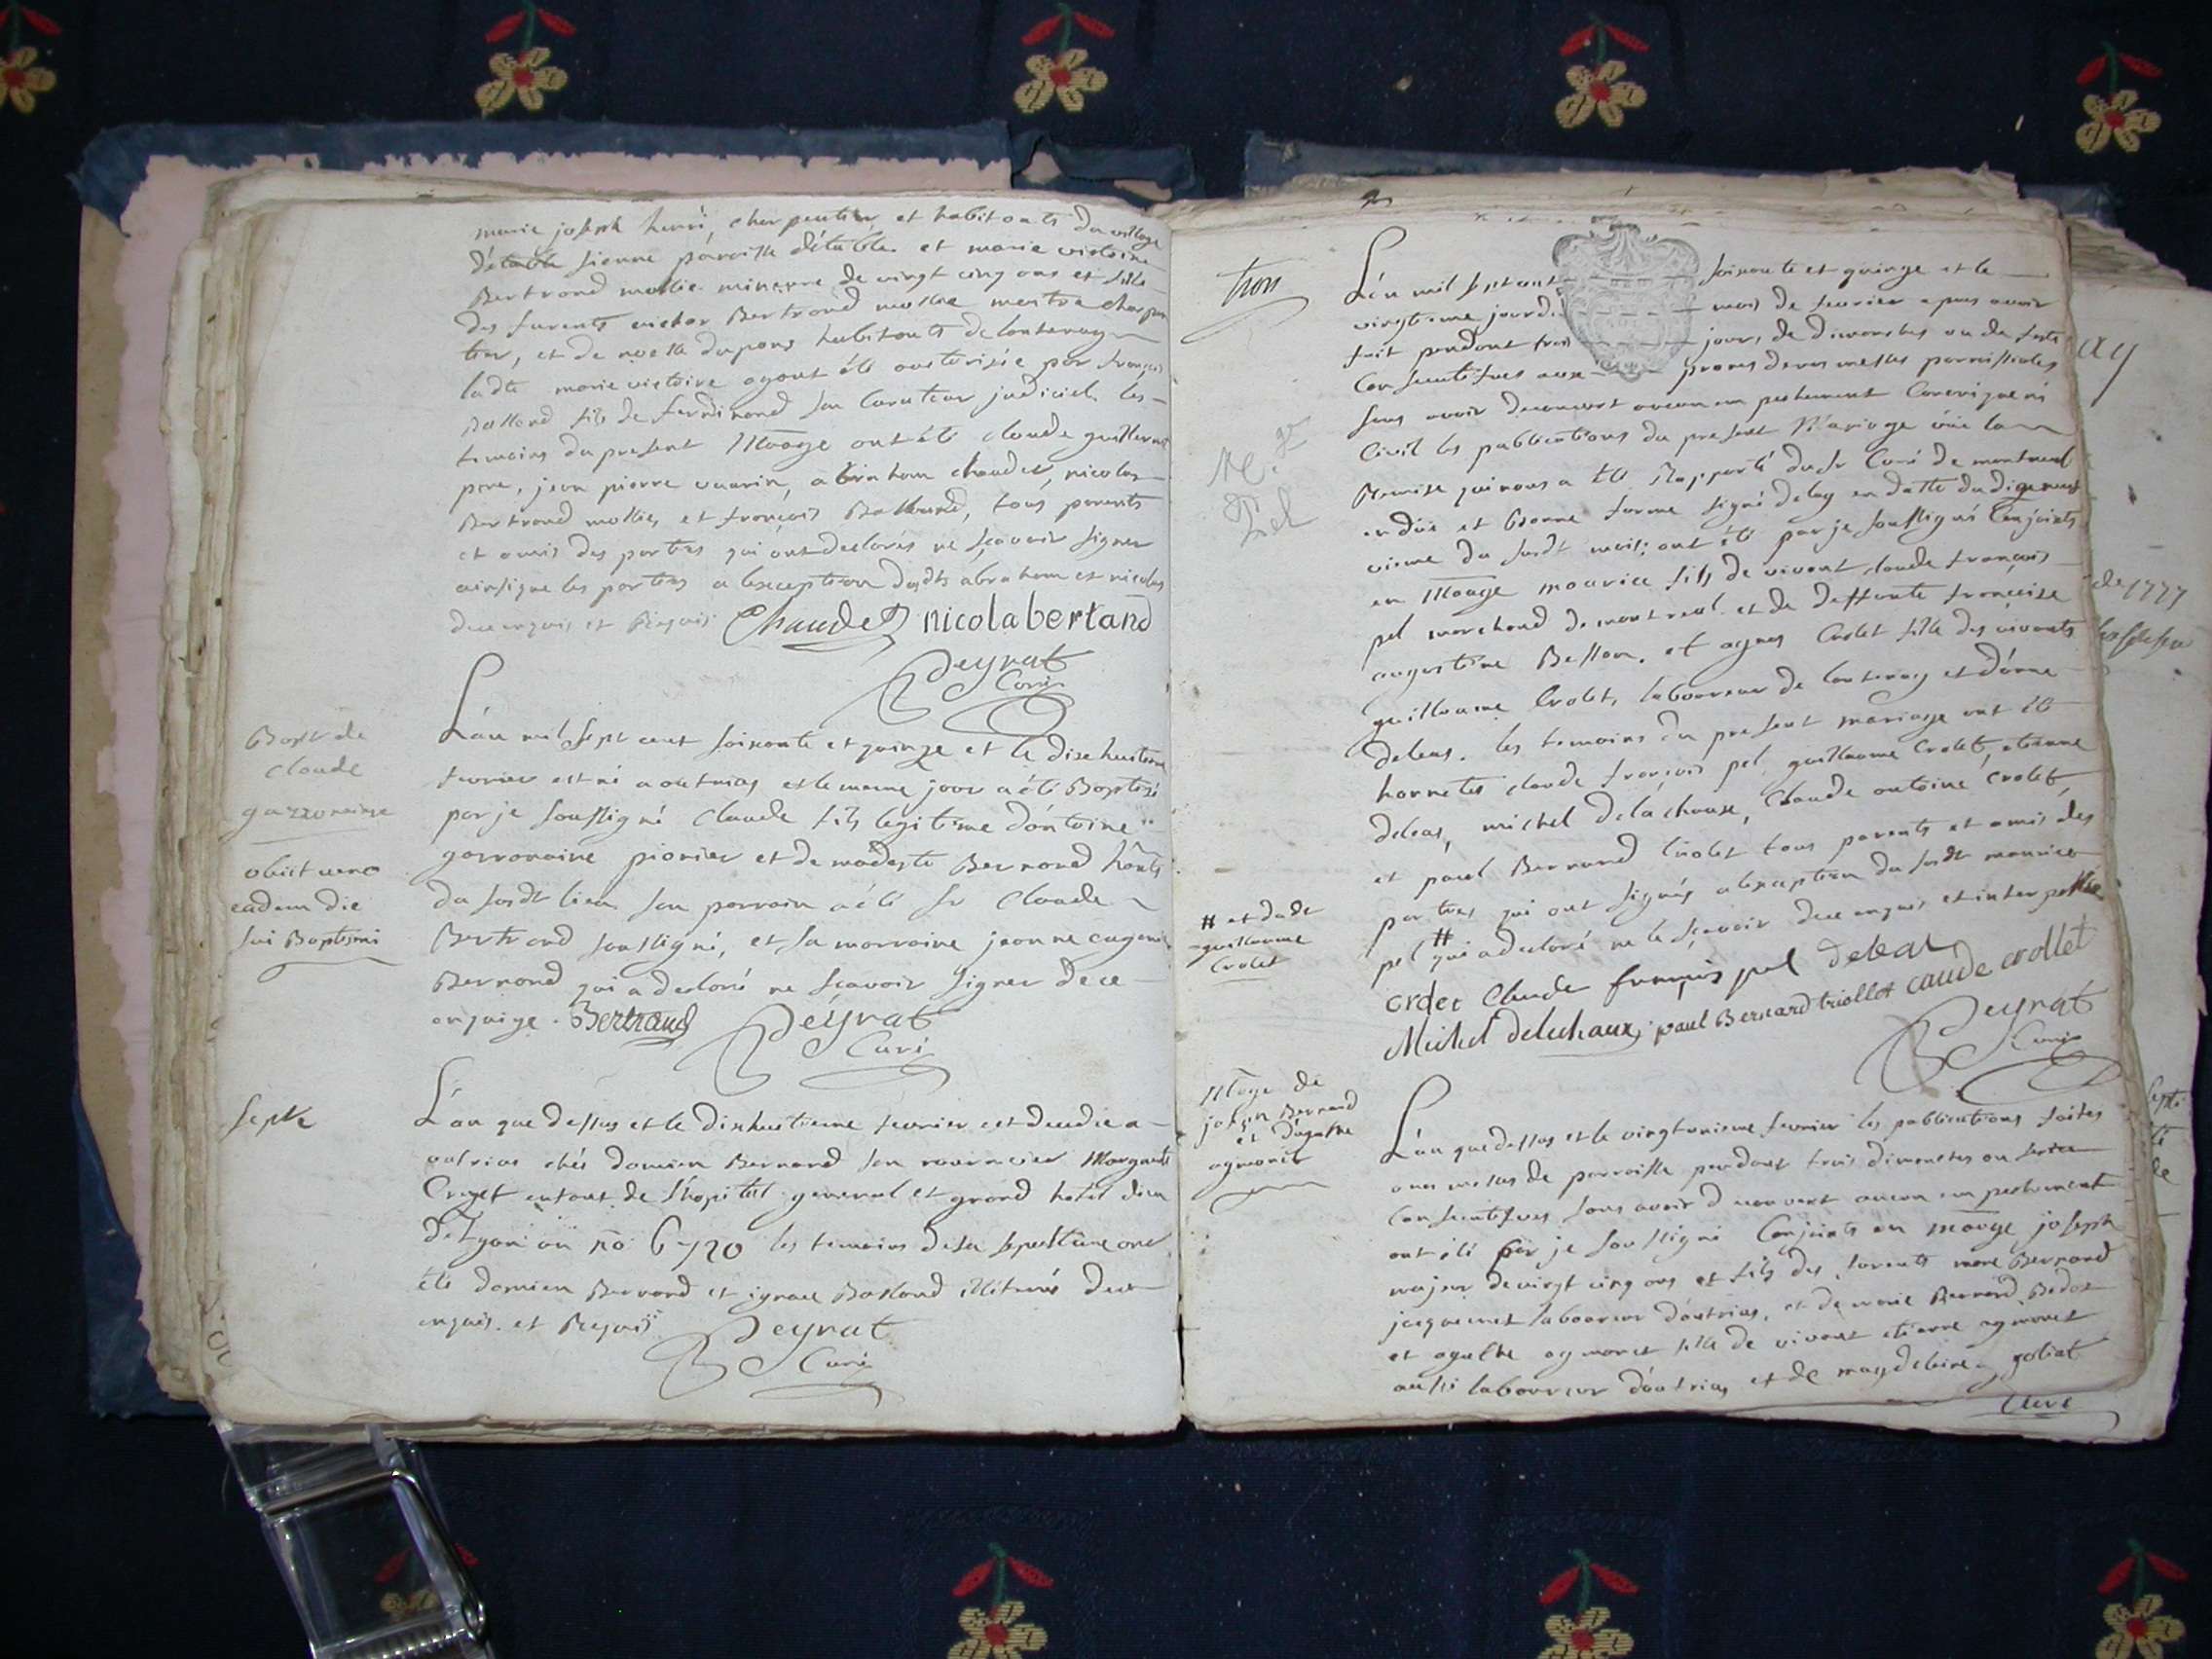 marie joseph henri, charpentier et habitants du village
d'étable sienne paroisse d'étable et marie victoire
Bertrand mollie mineure de vingt cinq ans et fille
des furents victor Bertrand mollie maitre charpen
tier, et de habitants de lantenay
ladte marie victoire ayant été authorisée par françois
Balland fils de ferdinand son Curateur judiciel les
temoins du present Mãage ont été claude guillermet
pere, jean pierre vuarin, abraham chaudet, nicolas
Bertrand mollie, et françois Balland, tous parents
et amis des parties qui ont declarés ne sçavoir signer
ainsi que les parties a l'exception dusdts abraham et nicolas
de ce enquis et Requis Chaudet nicola bertand
Peyrat
Curé
Bapt de
claude
garronaire
obiit vero
eadem die
sui Baptismi
L'an mil sept cent soixante et quinze et le dixe huitieme
fevrier est né a outrias et le meme jour a été Baptisé
par je soussigné Claude fils legitime d'antoine
garronaire pionier et de modeste Bernard hãnts
du susdt lieu son parrain a été sr Claude
Bertrand soussigné, et sa marraine jeanne
Bernard qui a declaré ne sçavoir signer de ce
enquise. Bertrand Peyrat
Curé
Septre
L'an que dessus et le dixhuitieme fevrier est decedée a
outrias chés damien Bernard son nourricier Margueritte
Cruzet enfant de l'hopital general et grand hotel dieu
de Lyon au no 6720 les temoins de sa sepulture ont
été damien Bernard et ignace Balland illiterés de ce
enquis et Requis Peyrat
Curé
tron
L'an mil sept cent soixante et quinze et le
vingtieme jour du mois de fevrier apres avoir
fait pendant trois jours de dimanches ou de festes
Consecutifves aux prones de nos messes parroissiales
sans avoir decouvert aucun empechement Canonique ni
Civil les publications du present Mariage vüe la
Remise qui nous a été Rapporté du sr Curé de montreal
en düe et bonne forme signé delay en datte du dixneuf
vieme du susdt mois; ont été par je soussigné Conjoints
en Mãage maurice fils de vivant claude françois
pel marchand de montreal et de deffunte françoise
augustine Besson. et agnes Crolet fille des vivants
guillaume Crolet, laboureur de lantenay et d'anne
deleas. les temoins du present mariage ont été
honnetes claude françois pel guillaume Crolet, etienne
deleas, michel delachaux, Claude antoine Crolet,
et paul Bernard tous parents et amis des
parties qui ont signés a l'exception du susdt maurice
pel # qui a declaré ne le sçavoir de ce enquis et interpellé
# et dudt
guillaume
Crolet
Claude françois pel deleas
Michel delachaux paul Bernard triollet caude crollet
Peyrat
Curé
Mãge de
joseph Bernard
et d'agathe
aymonet
L'an que dessus et le vingtunieme fevrier les publications faites
a nos messes de parroisse pendant trois dimanches ou festes
Consecutifves sans avoir decouvert aucun empechement
ont été par je soussigné Conjoints en mãage joseph
majeur de vingt cinq ans et fils des furents Bernard
jacquemet laboureur d'outrias, et de marie Bernard
et agathe aymonet fille de vivant etienne aymonet
aussi laboureur d'outrias et de magdelaine goliat